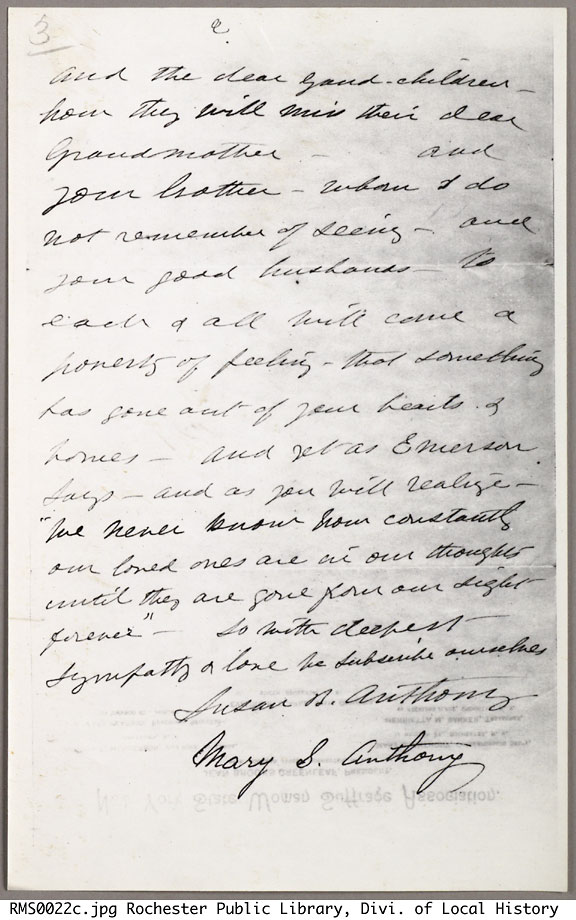 3
2
and the dear grand-children -
how they will miss their dear
Grandmother - and
your brother - whom I do
not remember of seeing - and
your good husbands - to
each & all will come a
poverty of feeling - that something
has gone out of your hearts &
homes - and yet as Emerson
says - and as you will realize -
"We never know how constantly
our loved ones are in our thoughts
until they are gone from our sight
forever" - So with deepest
sympathy & love we subscribe ourselves
Susan B. Anthony
Mary S. Anthony
New York State Woman Suffrage Association.
RMS0022c.jpg Rochester Public Library, Divi. of Local History